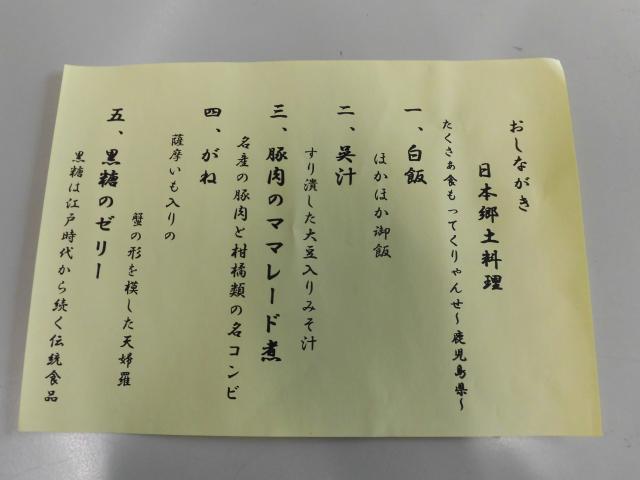 おしながき
日本郷土料理
たくさぁ食もってくりゃんせ～鹿児島県～
一、白飯
ほかほか御飯
二、呉汁
すり潰した大豆入りみそ汁
三、豚肉のママレード煮
名産の豚肉と柑橘類の名コンビ
四、がね
薩摩いも入りの
蟹の形を模した天婦羅
五、黒糖のゼリー
黒糖は江戸時代から続く伝統食品